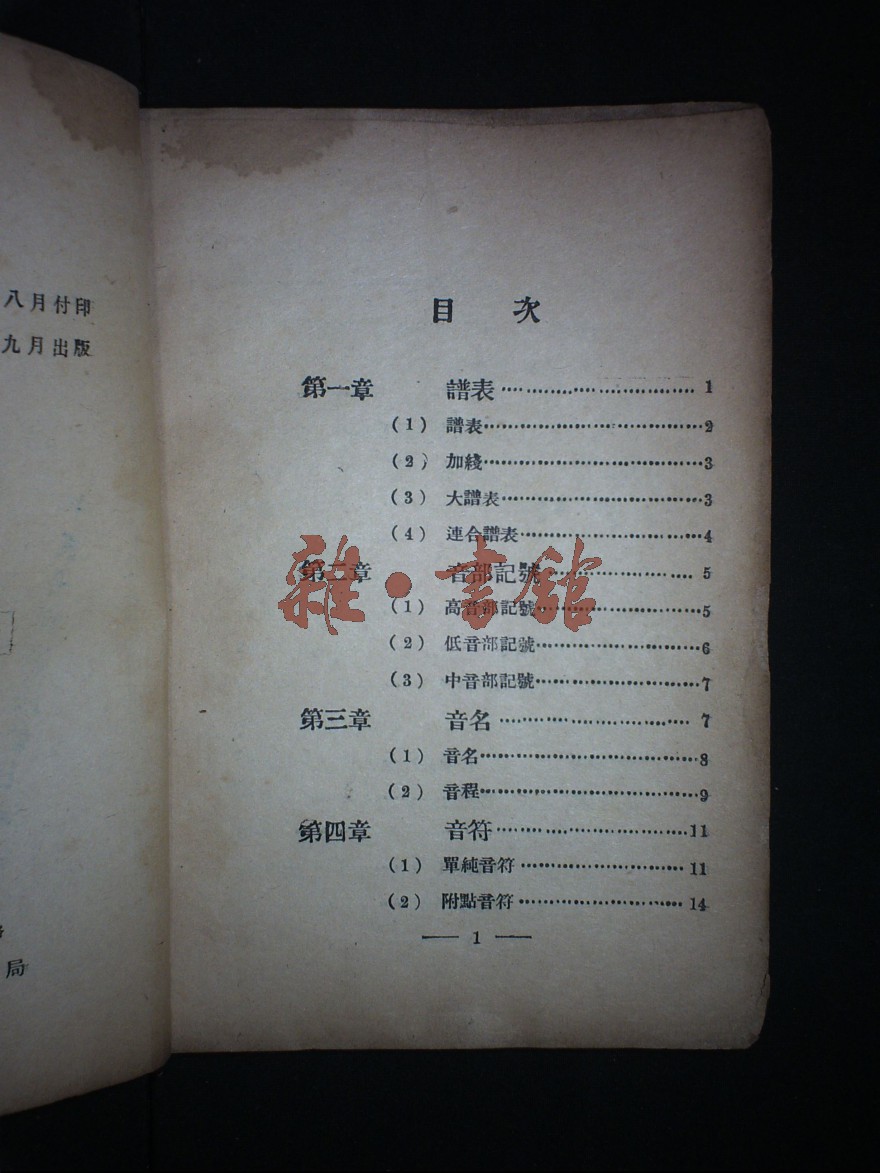 八月付印
九月出版
局
目 次
第一章 譜表 1
(1) 譜表 2
(2) 加綫 3
(3) 大譜表 3
(4) 連合譜表 4
第二章 音部記號 5
(1) 高音部記號 5
(2) 低音部記號 6
(3) 中音部記號 7
第三章 音名 7
(1) 音名 8
(2) 音程 9
第四章 音符 11
(1) 單純音符 11
(2) 附點音符 14
— 1 —
雜·書館